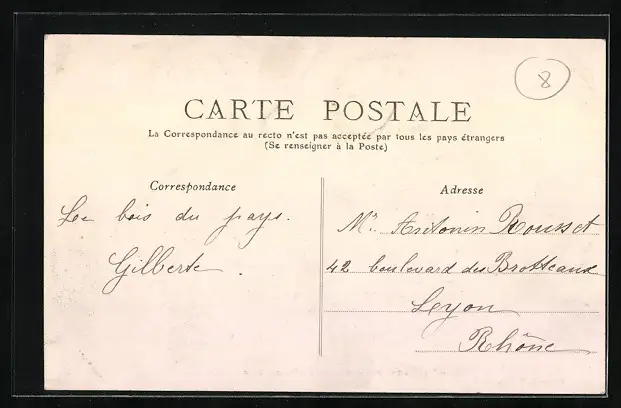 8
CARTE POSTALE
La Correspondance au recto n'est pas acceptée par tous les pays étrangers
(Se renseigner à la Poste)
Correspondance
Adresse
Le bois du pays.
Gilberte.
Mr. Antonin Rousset
42 boulevard des Brotteaux
Lyon
Rhône